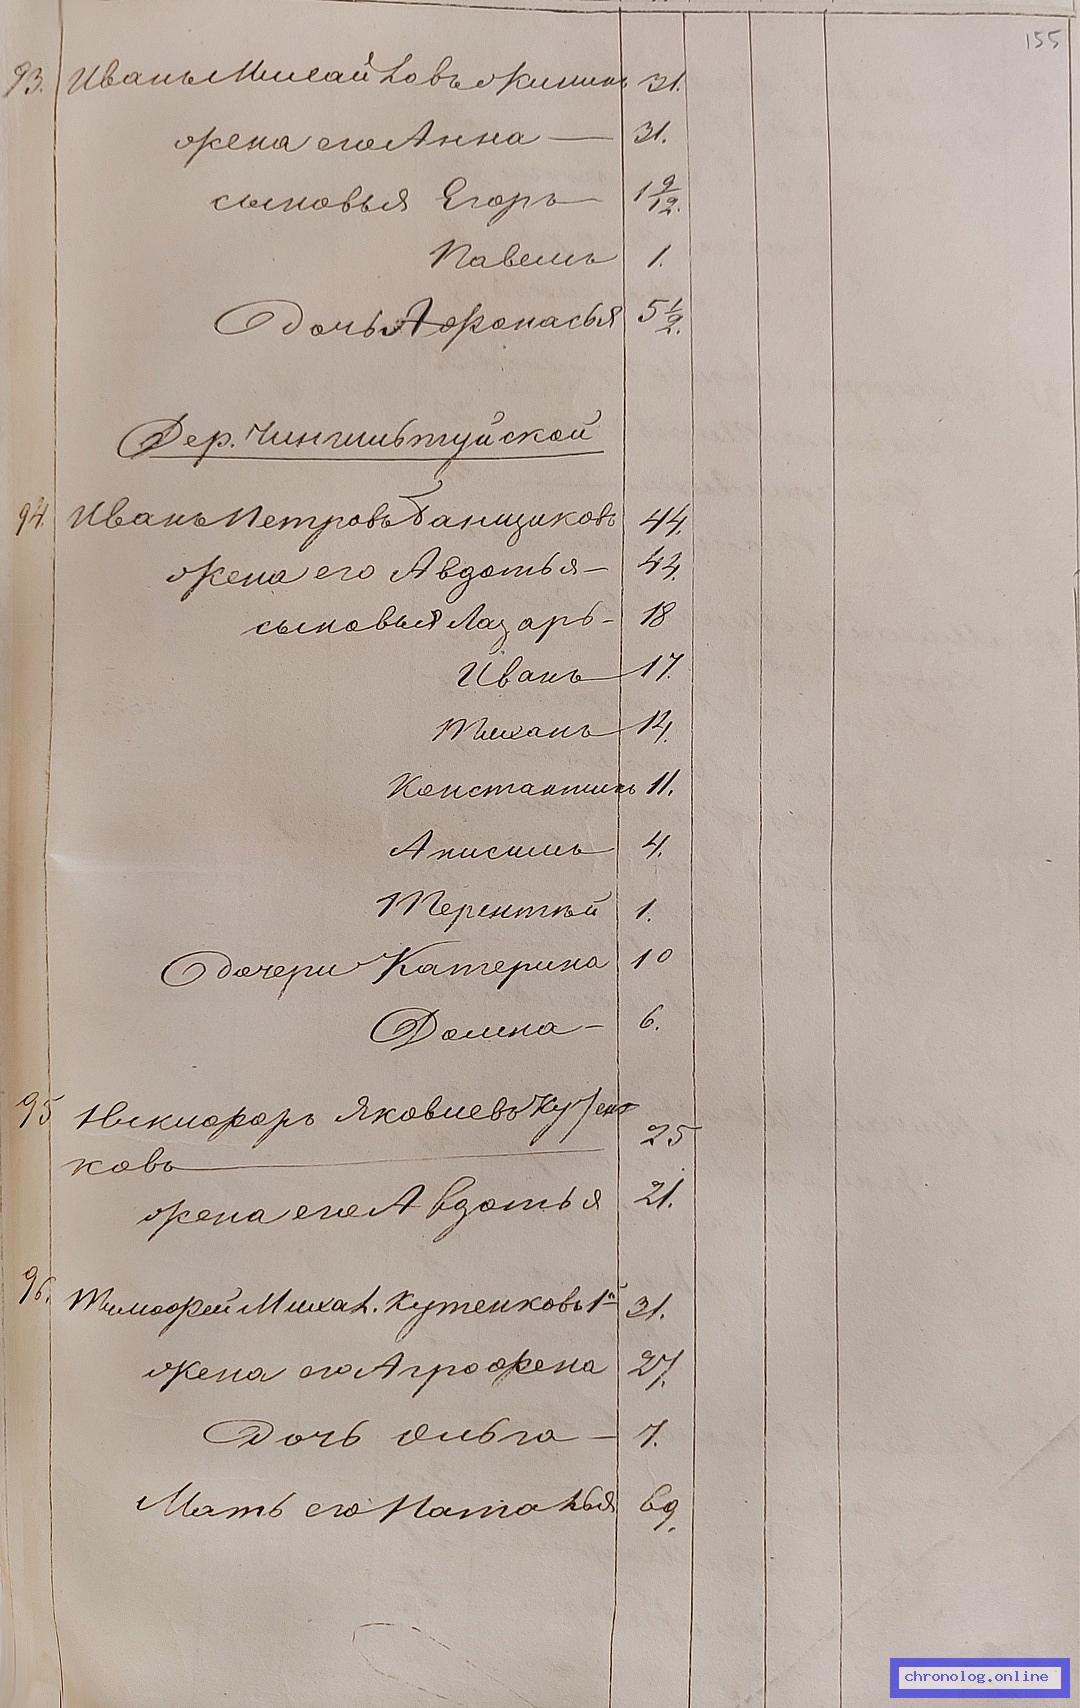 155
93. Иванъ Михайловъ Жининъ 31.
жена его Анна — 31.
сыновья Егоръ 1 9/12.
Павелъ 1.
Дочь Афонасья 5 1/2.
Дер. Чингильтуйской
94. Иванъ Петровъ Банщиковъ 44.
жена его Авдотья — 43.
сыновья Лазарь - 18
Иванъ 17.
Тиханъ 14.
Константинъ 11.
Анисимъ 4.
Терентий 1.
Дочери Катерина 10
Домна — 6.
95 Никифоръ Яковлевъ Кутен
ковъ 25
жена его Авдотья 21.
96. Тимофей Михал. Кутенковъ 1й 31.
жена его Агрофена 27.
Дочь Ольга — 7.
Мать его Наталья 69.
chronolog.online